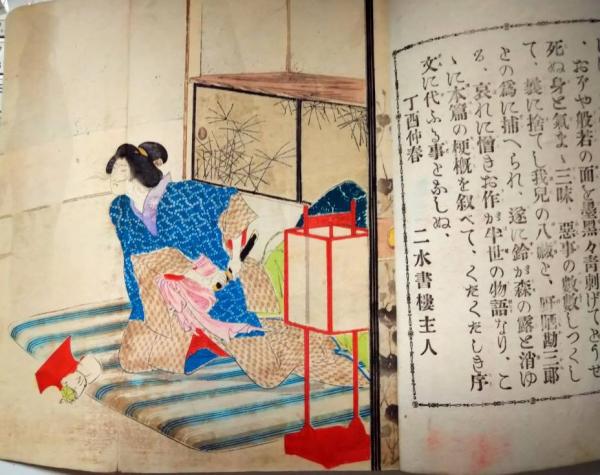 般若の面を墨黒々青刺げてどうせ
死ぬ身と氣まゝ三昧、惡事の數數しつくし
て、曩に捨てし我兒の八歳と、野晒勘三郎
との爲に捕へられ、遂に鈴が森の露と消ゆ
る、哀れに憎きお作が半世の物語なり、こ
ゝに本篇の梗概を叙べて、くだくだしき序
文に代ふる事となしぬ、
丁酉仲春
二水書樓主人